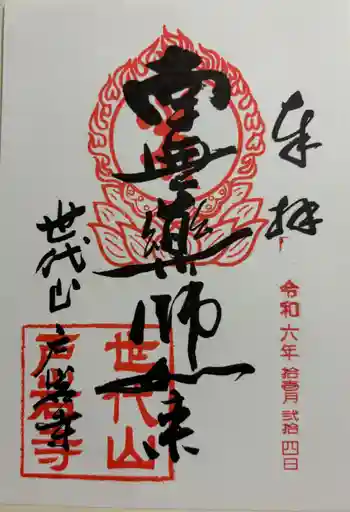 奉拝
令和六年拾壱月弐拾四日
薬師如来
世代山
戸岩寺
世代山
戸岩寺